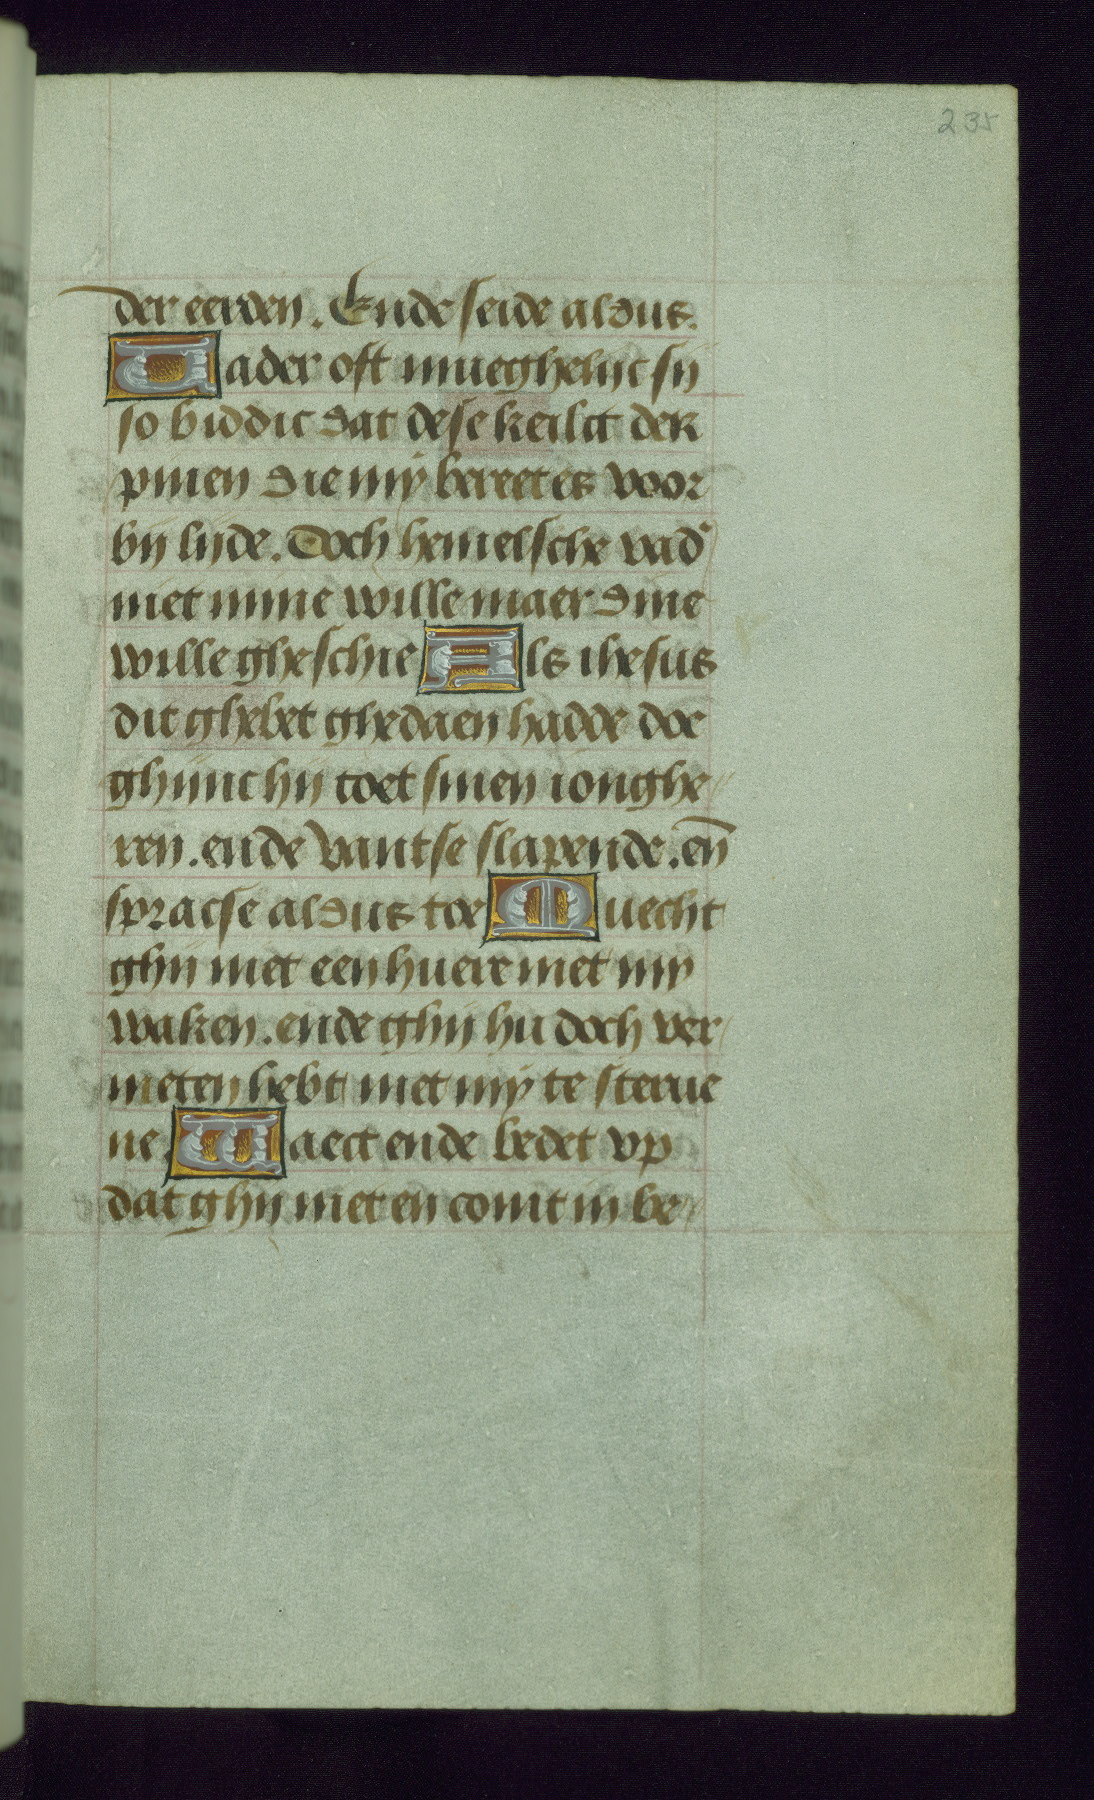 235
der eerden. Ende seide aldus.
Vader oft mueghelijc sij
so biddic dat dese keilct der
pinen die mÿ bereet es voor
bij lijde. Doch hemelsche vad'
niet mine wille maer dine
wille gheschie Als ihesus
dit ghebet ghedaen hadde doe
ghijnc hij toet sinen ionghe
ren. ende vantse slapende. eñ
spracse aldus toe Muecht
ghij niet een huere met mÿ
waken. ende ghij hu doch ver
meten hebt met mÿ te sterue
ne. Waect ende bedet vp
dat ghij niet en comt in be